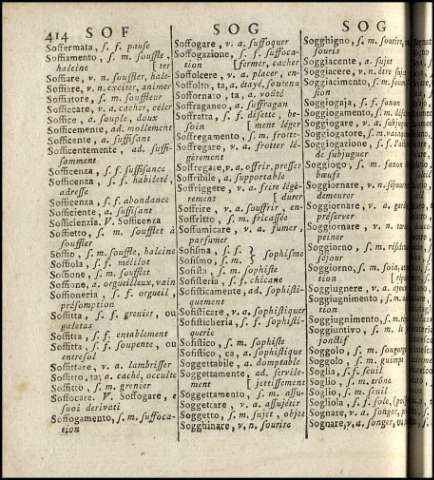 414 SOF SOG SOG
Soffermata, s. f. pause
Soffiamento, s. m. souffle,
haleine [ter
Soffiare, v. n. souffler, hale-
Soffiare, v. n. exciter, animer
Soffiatore, s. m. souffleur
Sofficcare, v. a. cacher, céler
Soffice, a souple, doux
Sofficemente, ad. mollement
Sofficente, a. suffisant
Sofficentemente, ad. suffi-
samment
Sofficenza, s. f. suffisance
Sofficenza, s. f. habileté,
adresse
Sofficenza, s. f. abondance
Sofficiente, a. suffisant
Sofficienzia. V. Sofficenza
Soffietto, s. m. soufflet à
souffler
Soffio, s. m. souffle, haleine
Soffiola, s. f. mélilot
Soffione, s. m. soufflet
Soffione, a. orgueilleux, vain
Soffioneria, s. f. orgueil,
présomption
Soffitta, s. f. grenier, ou
galetas
Soffitta, s. f. entablement
Soffitta, s. f. soupente, ou
entresol
Soffittare, v. a. lambrisser
Soffitto, ta, a. caché, occulte
Soffitto, s. m. grenier
Soffocare. V. Soffogare, e
suoi derivati
Soffogamento, s. m. suffoca-
tion
Soffogare, v. a. suffoquer
Soffogazione, s. f. suffoca-
tion [fermer, cacher
Soffolcere, v. a. placer, en-
Soffolto, ta, a. étayé, soutenu
Soffornato, ta, a. voûté
Soffraganeo, a. suffragan
Soffratta, s. f. disette, be-
soin [ment léger
Soffregamento, s. m. frotte-
Soffregare, v. a. frotter lé-
gèrement
Soffregare, v. a. offrir, presser
Soffribile, a. supportable
Soffriggere, v. a. frire légè-
rement [durer
Soffrire, v. a. souffrir, en-
Soffritto, s. m. fricassée
Soffumicare, v. a. fumer,
parfumer
Sofisma, s. f. } sophisme
Sofismo, s. m. }
Sofista, s. m. sophiste
Sofisteria, s. f. chicane
Sofisticamente, ad. sophisti-
quement
Sofisticare, v. a. sophistiquer
Sofisticheria, s. f. sophisti-
quer
Sofistico, s. m. sophiste
Sofistico, ca, a. sophistique
Soggettabile, a domptable
Soggettamente, ad. servile-
ment [jettissement
Soggettamento, s. m. assu-
Soggettare, v. a. assujétir
Soggetto, s. m. sujet, objet
Sogghinare, v. n. sourire
Sogghigno, s. m. sourire,
souris
Soggiacente, a. sujet
Soggiacere, v. n. être
Soggiacimento, s. m.
sion
Soggiogaja, s. f. fanon
Soggiogamento, s. m.
Soggiogare, v. a. subjug
Soggiogatore, s. m.
Soggiogazione, s. f.
de subjuguer
Soggiogo, s. m. fanon
bœufs
Soggiornare, v. n. séjour
demeurer
Soggiornare, v. a.
préserver
Soggiornare, v. n.
peiner
Soggiorno, s. m.
séjour
Soggiorno, s. m. soin,
tion
Soggiugnere, v. a.
Soggiugnimento, s. m.
Soggiuntivo, s. m.
jonctif
Soggolo, s. m.
Soggolo, s. m.
Soglia, s. f. seuil
Soglio, s. m. trône
Soglio, s. m. seuil
Sogliola, s. f. sole,
Sognare, v. a. songer,
Sognare, v. a. songer,